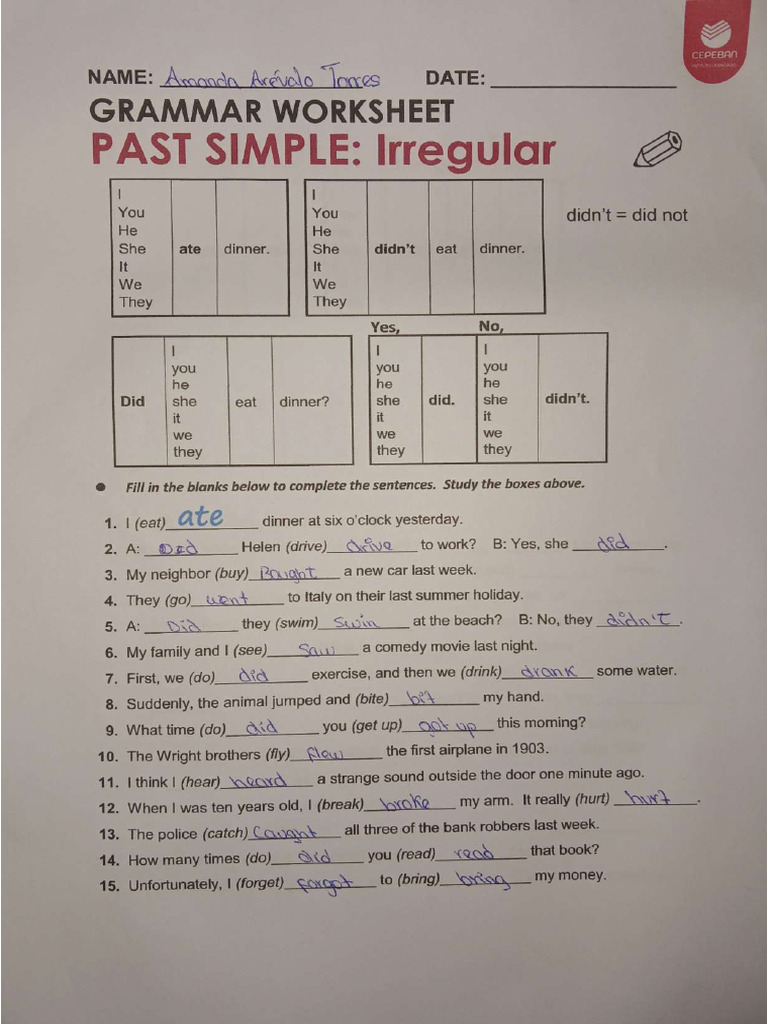 CEPEBAN
NAME: Amanda Arévalo Torres DATE:
GRAMMAR WORKSHEET
PAST SIMPLE: Irregular
I
You
He
She ate dinner.
It
We
They
I
You
He
She didn't eat dinner.
It
We
They
didn't = did not
Did
I
you
he
she
it
we
they
eat dinner?
Yes,
I
you
he
she
it
we
they
did.
No,
I
you
he
she
it
we
they
didn't.
● Fill in the blanks below to complete the sentences. Study the boxes above.
1. I (eat) ate dinner at six o'clock yesterday.
2. A: Ded Helen (drive) drive to work? B: Yes, she did.
3. My neighbor (buy) Bought a new car last week.
4. They (go) went to Italy on their last summer holiday.
5. A: Did they (swim) swin at the beach? B: No, they didn't.
6. My family and I (see) Saw a comedy movie last night.
7. First, we (do) did exercise, and then we (drink) drank some water.
8. Suddenly, the animal jumped and (bite) bit my hand.
9. What time (do) did you (get up) got up this morning?
10. The Wright brothers (fly) flew the first airplane in 1903.
11. I think I (hear) heard a strange sound outside the door one minute ago.
12. When I was ten years old, I (break) broke my arm. It really (hurt) hurt.
13. The police (catch) Caught all three of the bank robbers last week.
14. How many times (do) did you (read) read that book?
15. Unfortunately, I (forget) forgot to (bring) bring my money.